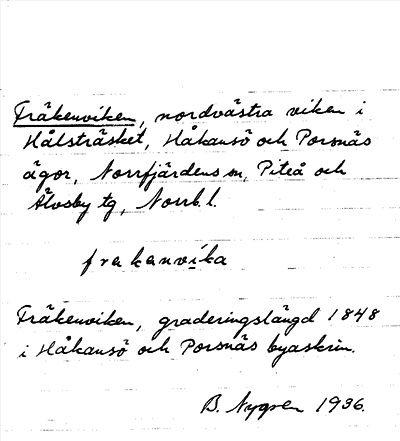 Fräkenviken, nordvästra viken i
Hålsträsket, Håkansö och Porsnäs
ägor, Norrfjärdens sn, Piteå och
Älvsby tg, Norrb. l.
frakanvika
Fräkenviken, graderingslängd 1848
i Håkansö och Porsnäs byaskrin.
B. Nygren 1936.